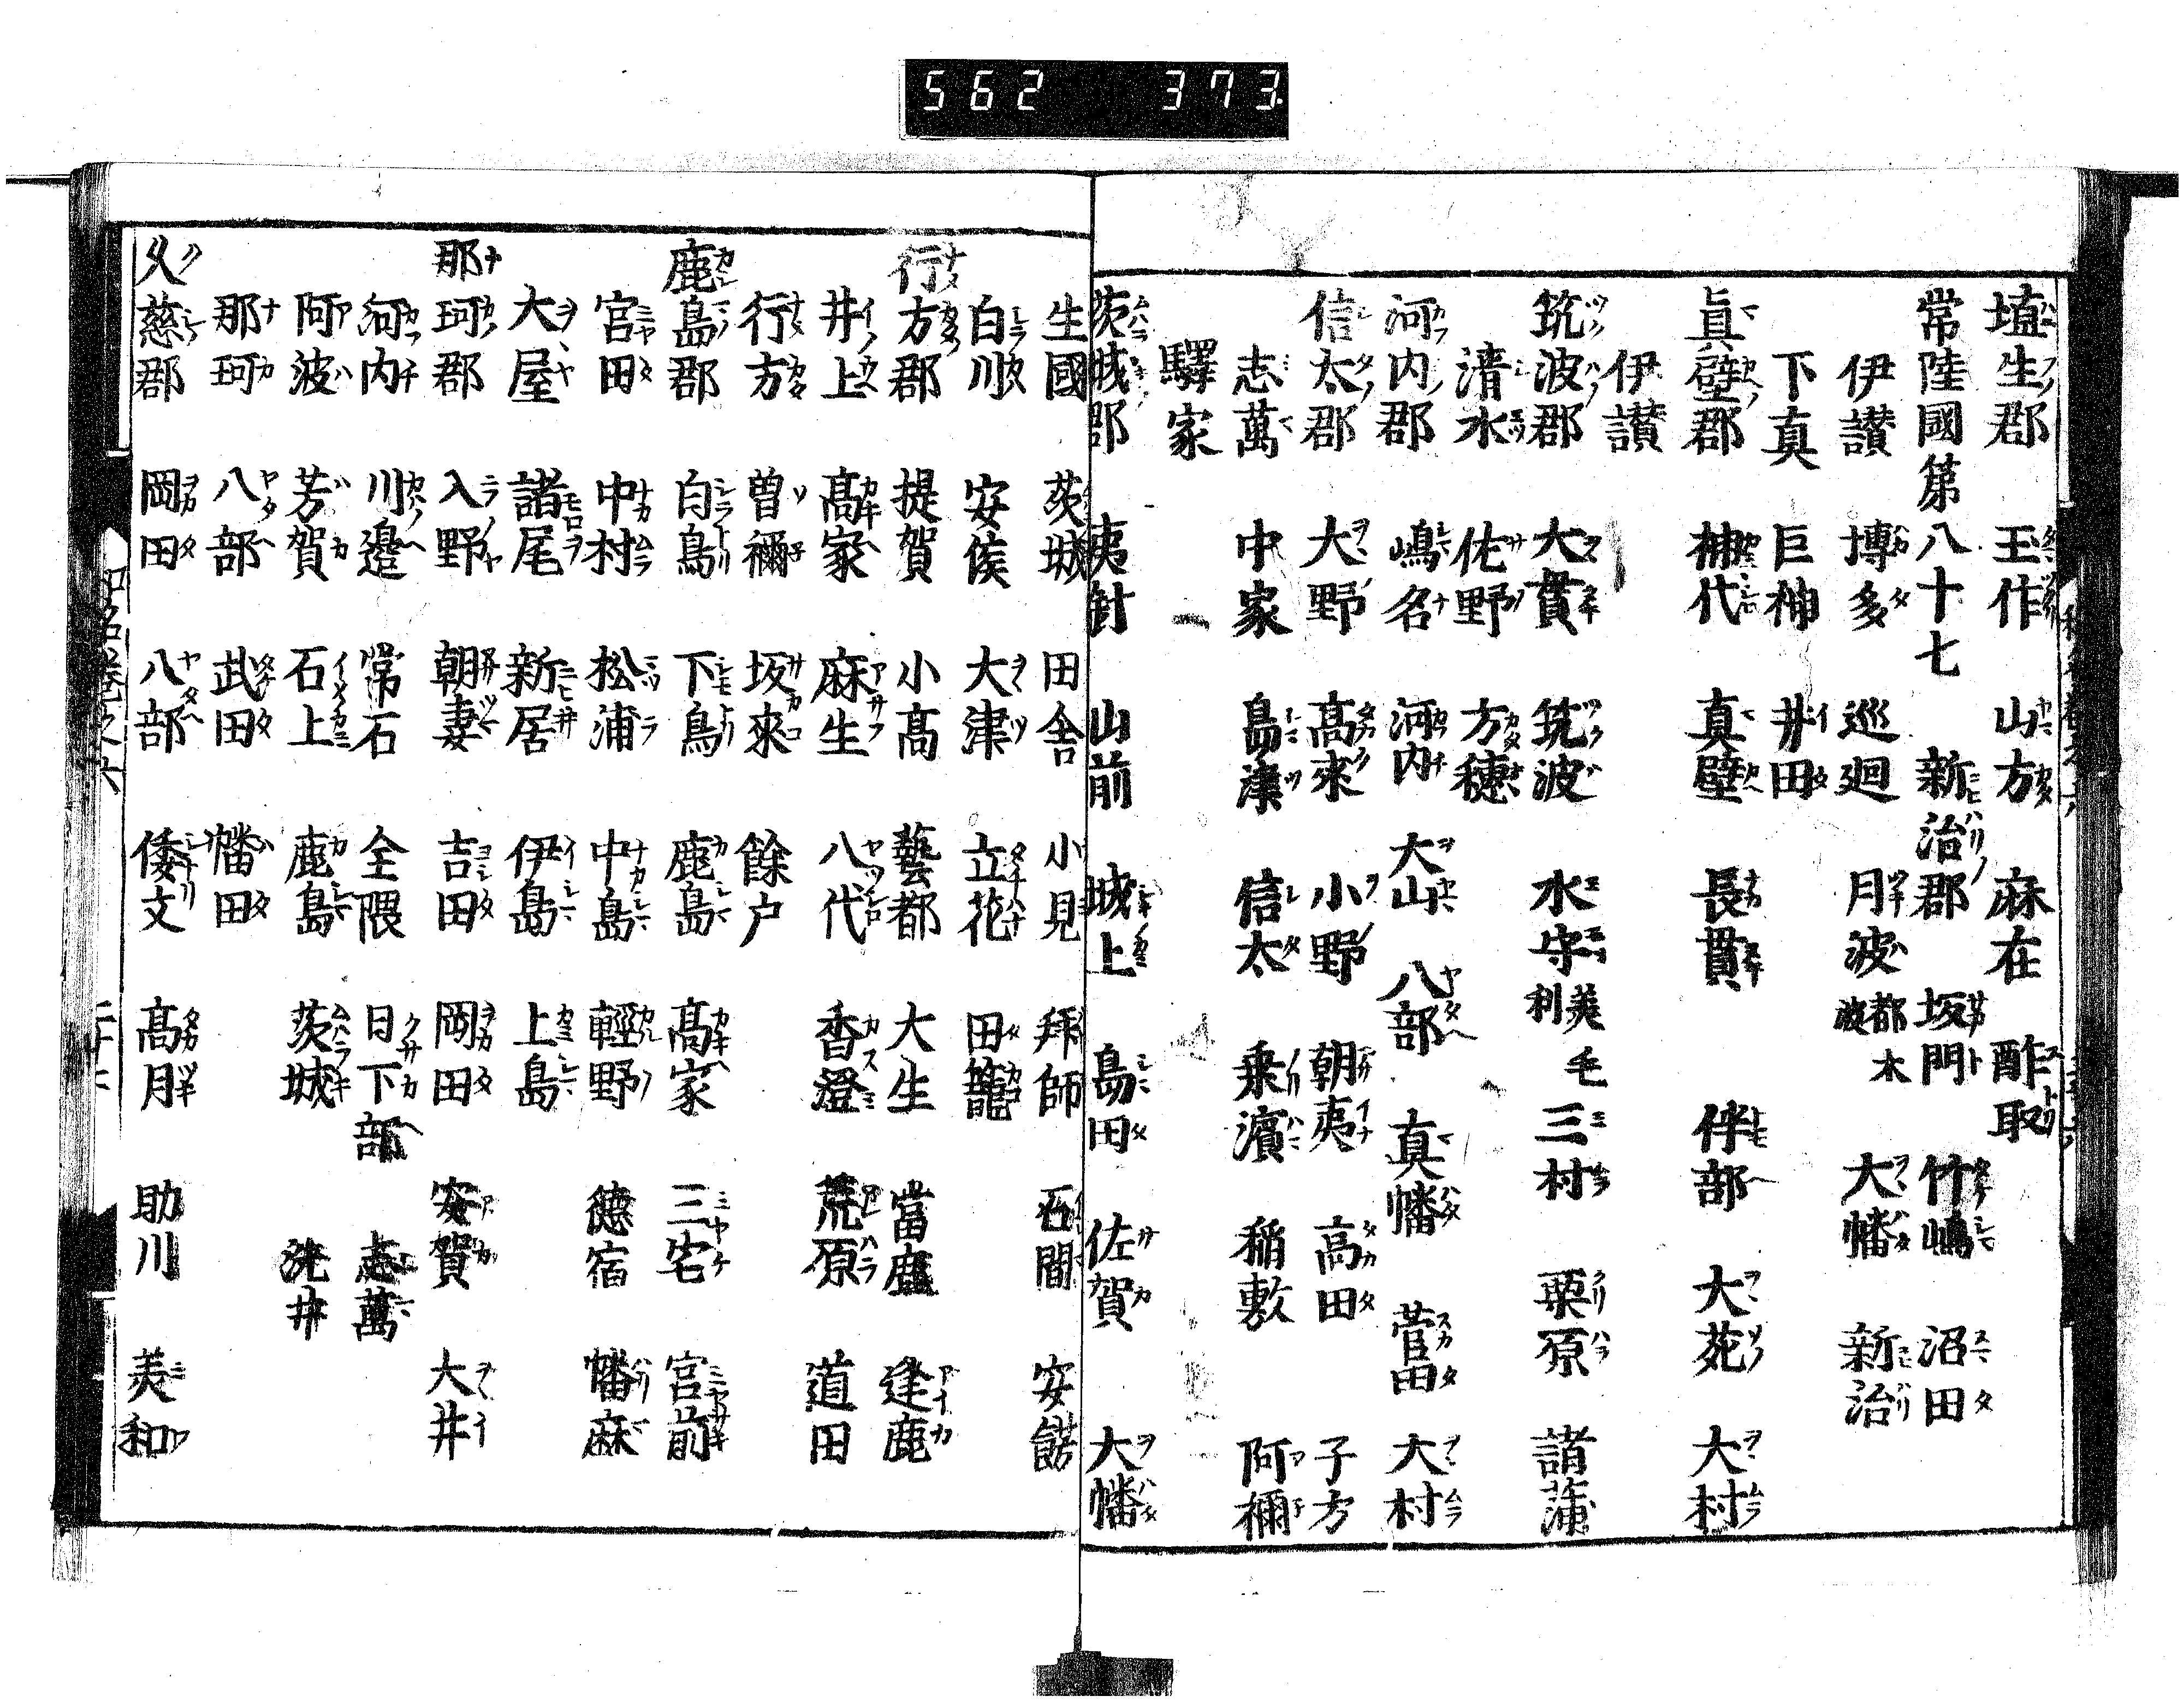 562 373.
埴生郡 玉作 山方 麻在 酢取
常陸國第八十七 新治郡 坂門 竹嶋 沼田
伊讃 博多 巡廻 月波 都波木 大幡 新治
下真 巨神 井田
真壁郡 神代 真壁 長貫 伴部 大苑 大村
伊讃
筑波郡 大貫 筑波 水守 美利毛 三村 栗原 諸蒲
清水 佐野 方穂
河内郡 嶋名 河内 大山 八部 真幡 菅田 大村
信太郡 大野 髙來 小野 朝夷 高田 子方
志萬 中家 島津 信太 乗濱 稲敷 阿禰
驛家
茨城郡 夷針 山前 城上 島田 佐賀 大幡
生國 茨城 田舎 小見 拜師 石間 安餝
白川 安侯 大津 立花 田籠
行方郡 提賀 小髙 藝都 大生 當鹿 逢鹿
井上 髙家 麻生 八代 香澄 荒原 道田
行方 曽禰 坂來 餘户
鹿島郡 白鳥 下鳥 鹿島 髙家 三宅 宮前
宮田 中村 松浦 中島 輕野 德宿 幡麻
大屋 諸尾 新居 伊島 上島
那珂郡 入野 朝妻 吉田 岡田 安賀 大井
河内 川邉 常石 全隈 日下部 志萬
阿波 芳賀 石上 鹿島 茨城 洗井
那珂 八部 武田 幡田
久慈郡 岡田 八部 倭文 髙月 助川 美和